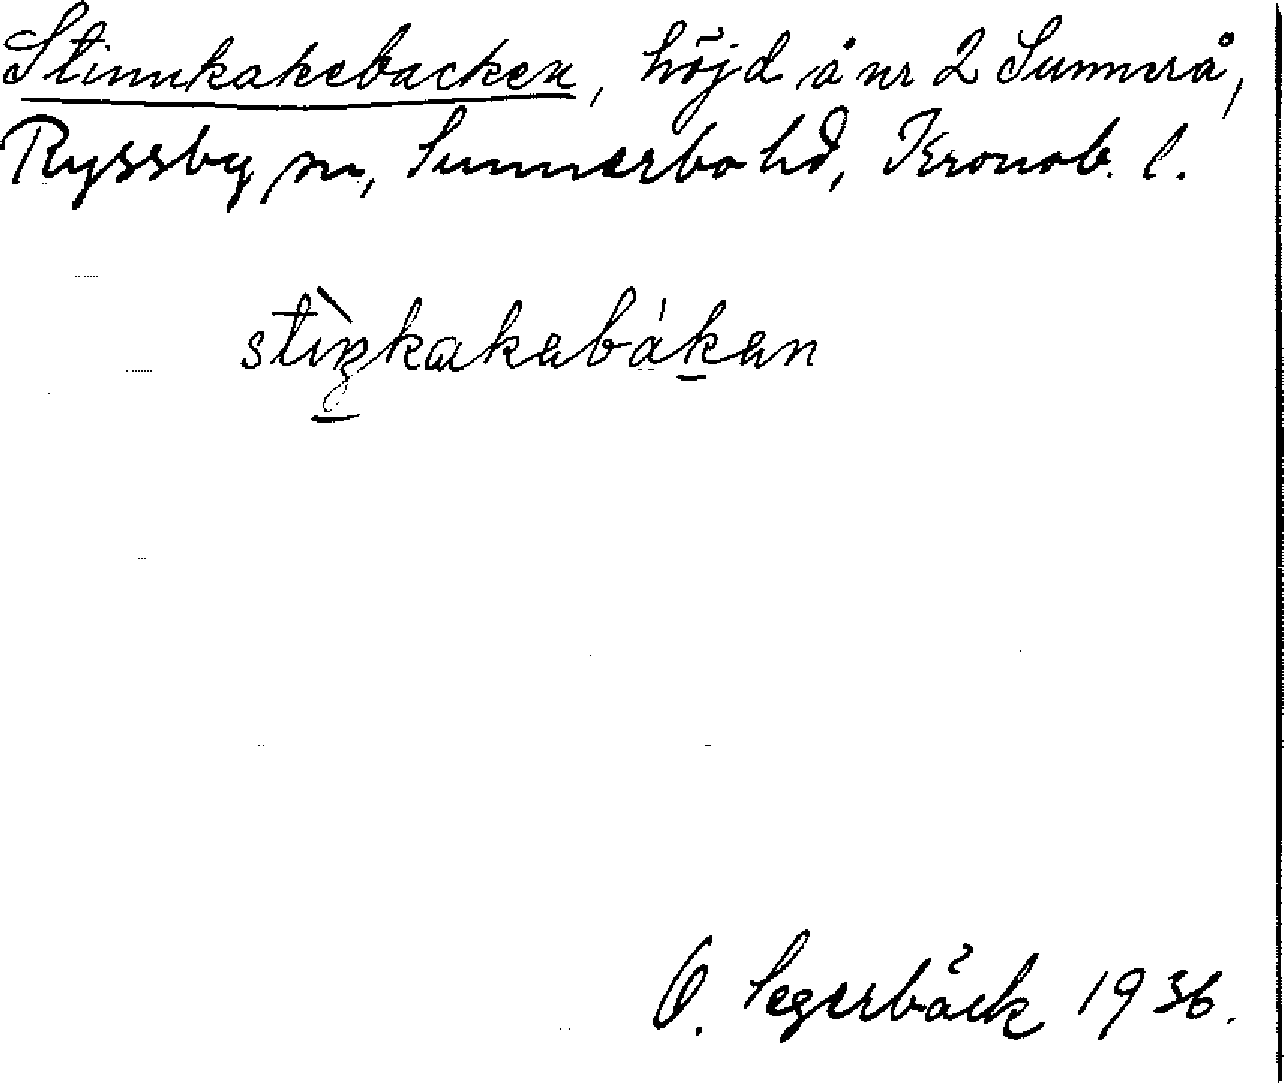 Stinnkakebacken, höjd å nr 2 Sunnerå,
Ryssby sn, Sunnerbo hd, Kronob. l.
stìŋkakabákan
O. Segerbäck 1936.